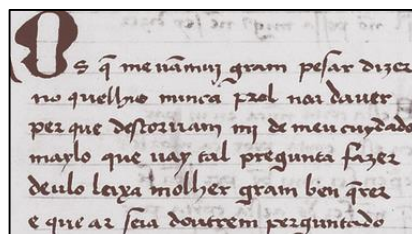 Os q̃ me uã mui gram pesar dizer
no quelhio nunca prol nai dauer
per que destoruam mi de meu cuydado
maylo que uay tal pregunta fazer
deulo leixa molher gram ben q̃rer
e que ar seia doutrem perguntado